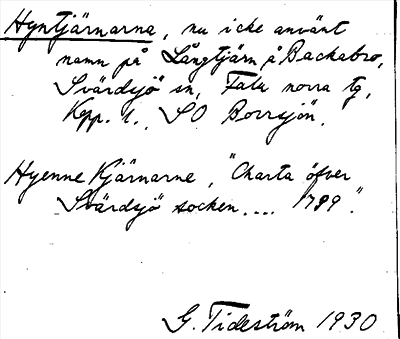 Hyntjärnarna, nu icke använt
namn på Långtjärn å Backabro,
Svärdsjö sn, Falu norra tg,
Kopp. l., SO Borrsjön.
Hyenne Kjärnarne, "Charta öfver
Svärdsjö socken.... 1789".
G. Tideström 1930